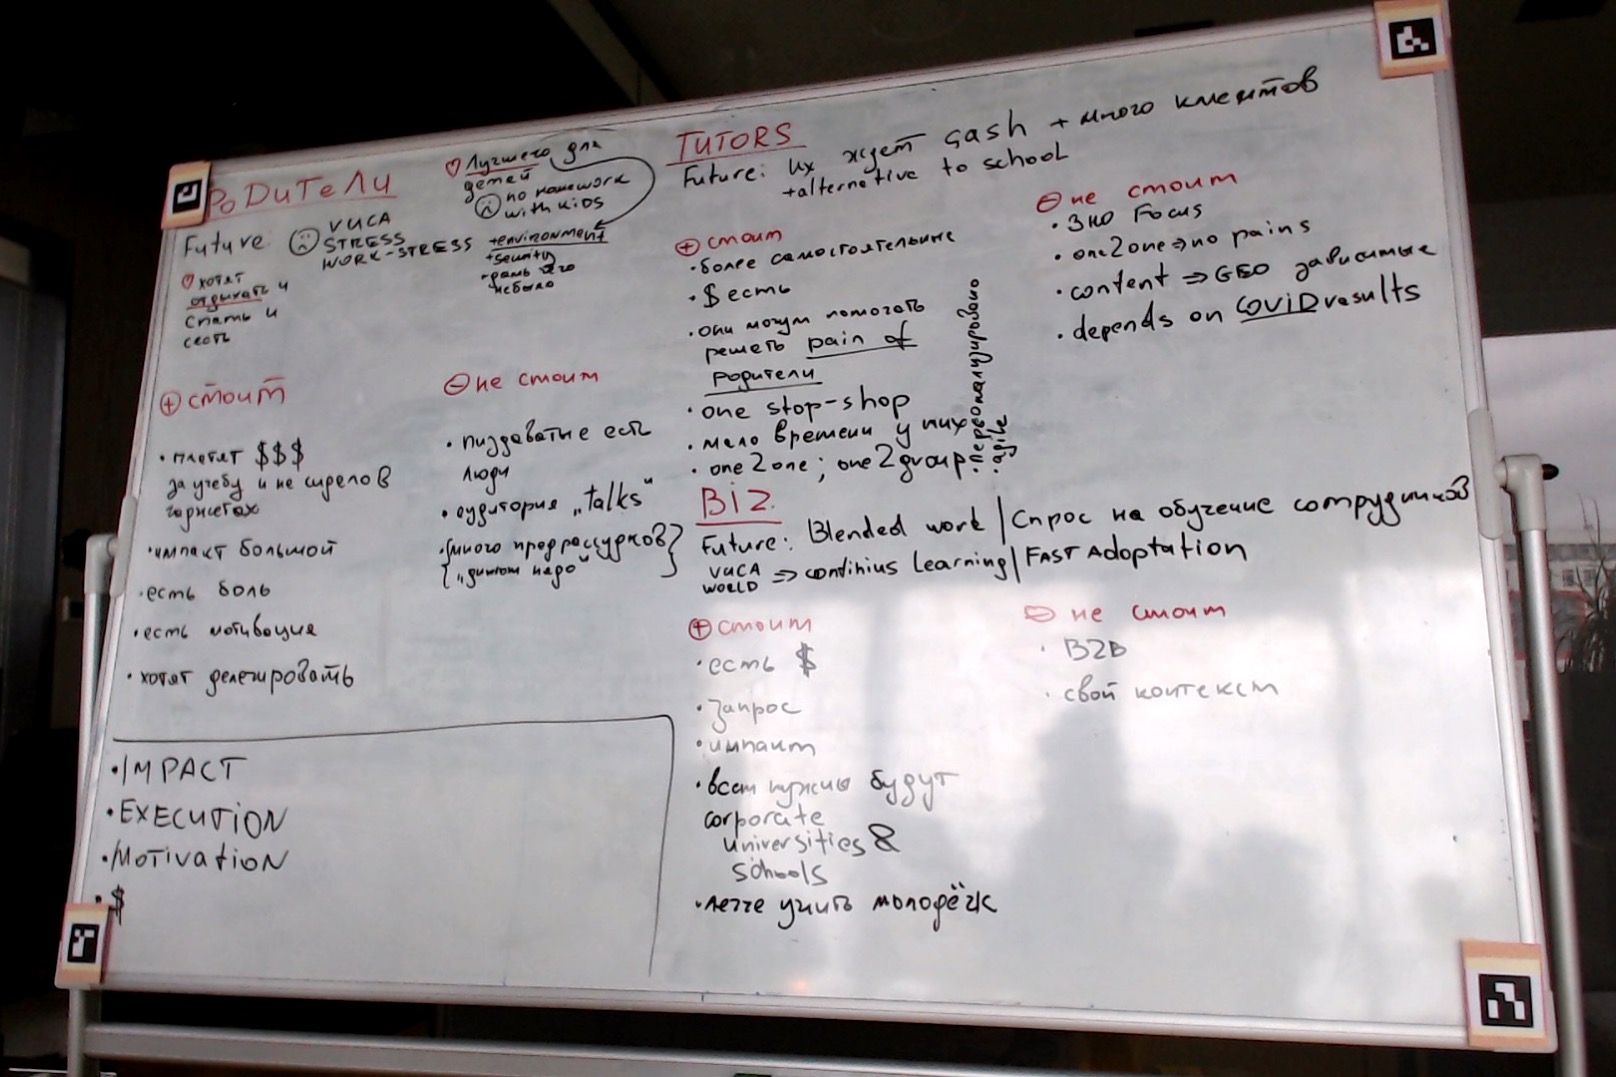 РОДИТЕЛИ
Future ☹ VUCA
STRESS
WORK-STRESS
♡ хотят
отдыхать и
спать и
сеоть
♡ Лучшего для
детей
☹ no homework
with kids
+environment
+security
небыло
⊕ стоит
• платят $$$
за учебу и не сиделов
горжетах
• импакт большой
• есть боль
• есть мотивация
• хотят делегировать
⊖ не стоит
• пиздаватые есть
люди
• аудитория „talks“
• {много предрассудков}
{„диплом надо“
• IMPACT
• EXECUTION
• MOTIVATION
• $
TUTORS
Future: их ждет cash + много клиентов
+alternative to school
⊕ стоит
• более самостоятельные
• $ есть
• они могут помогать
решать pain of
родители
• one stop-shop
• мало времени у них
• one2one; one2group
• agile
⊖ не стоит
• ЗНО Focus
• one2one ⇒ no pains
• content ⇒ GEO зависимые
• depends on COVID results
BIZ.
Future: Blended work | Спрос на обучение сотрудников
VUCA
WORLD ⇒ continius Learning | FAST Adoptation
⊕ стоит
• есть $
• запрос
• импакт
• всем нужно будут
corporate
universities &
schools
• легче учить молодёжь
⊖ не стоит
• B2B
• свой контекст